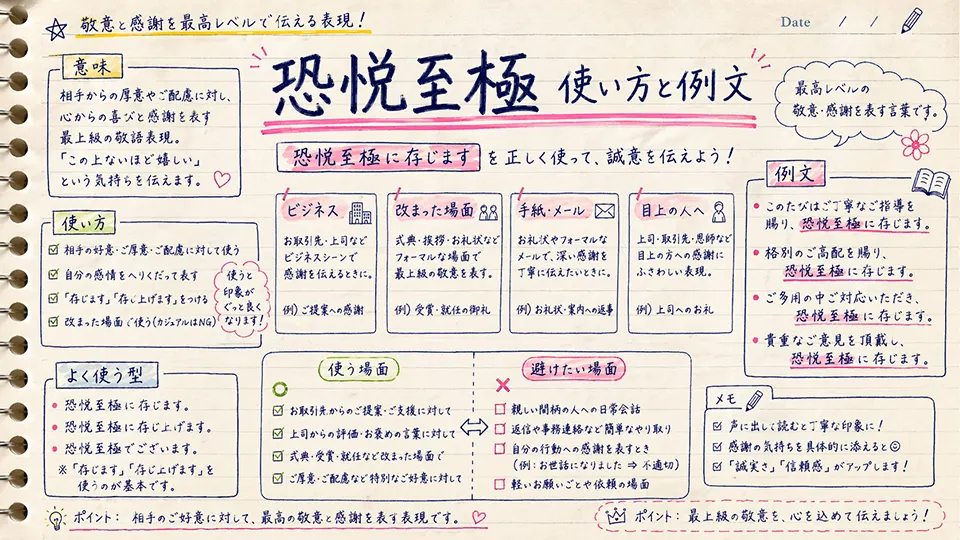 敬意と感謝を最高レベルで伝える表現!
Date / /
恐悦至極 使い方と例文
恐悦至極に存じます を正しく使って、誠意を伝えよう!
最高レベルの
敬意・感謝を表す言葉です。
意味
相手からの厚意やご配慮に対し、
心からの喜びと感謝を表す
最上級の敬語表現。
「この上ないほど嬉しい」
という気持ちを伝えます。
使い方
相手の好意・ご厚意・ご配慮に対して使う
自分の感情をへりくだって表す
「存じます」「存じ上げます」をつける
改まった場面で使う(カジュアルはNG)
使うと
印象が
ぐっと良く
なります!
よく使う型
恐悦至極に存じます。
恐悦至極に存じ上げます。
恐悦至極でございます。
※「存じます」「存じ上げます」を
使うのが基本です。
ビジネス
お取引先・上司など
ビジネスシーンで
感謝を伝えるときに。
例) ご提案への感謝
改まった場面
式典・挨拶・お礼状など
フォーマルな場面で
最上級の敬意を表す。
例) 受賞・就任の御礼
手紙・メール
お礼状やフォーマルな
メールで、深い感謝を
丁寧に伝えたいときに。
例) お礼状・案内への返事
目上の人へ
上司・取引先・恩師など
目上の方への感謝に
ふさわしい表現。
例) 上司へのお礼
使う場面
お取引先からのご提案・ご支援に対して
上司からの評価・お褒めの言葉に対して
式典・受賞・就任など改まった場面で
ご厚意・ご配慮など特別なご好意に対して
避けたい場面
親しい間柄の人への日常会話
返信や事務連絡など簡単なやり取り
自分の行動への感謝を表すとき
(例:お世話になりました ⇒ 不適切)
軽いお願いごとや依頼の場面
例文
このたびはご丁寧なご指導を
賜り、恐悦至極に存じます。
格別のご高配を賜り、
恐悦至極に存じます。
ご多用の中ご対応いただき、
恐悦至極に存じます。
貴重なご意見を頂戴し、
恐悦至極に存じます。
メモ
声に出して読むと丁寧な印象に!
感謝の気持ちを具体的に添えると☺
「誠実さ」「信頼感」がアップします!
ポイント: 相手のご好意に対して、最高の敬意と感謝を表す表現です。
ポイント: 最上級の敬意を、心を込めて伝えましょう!